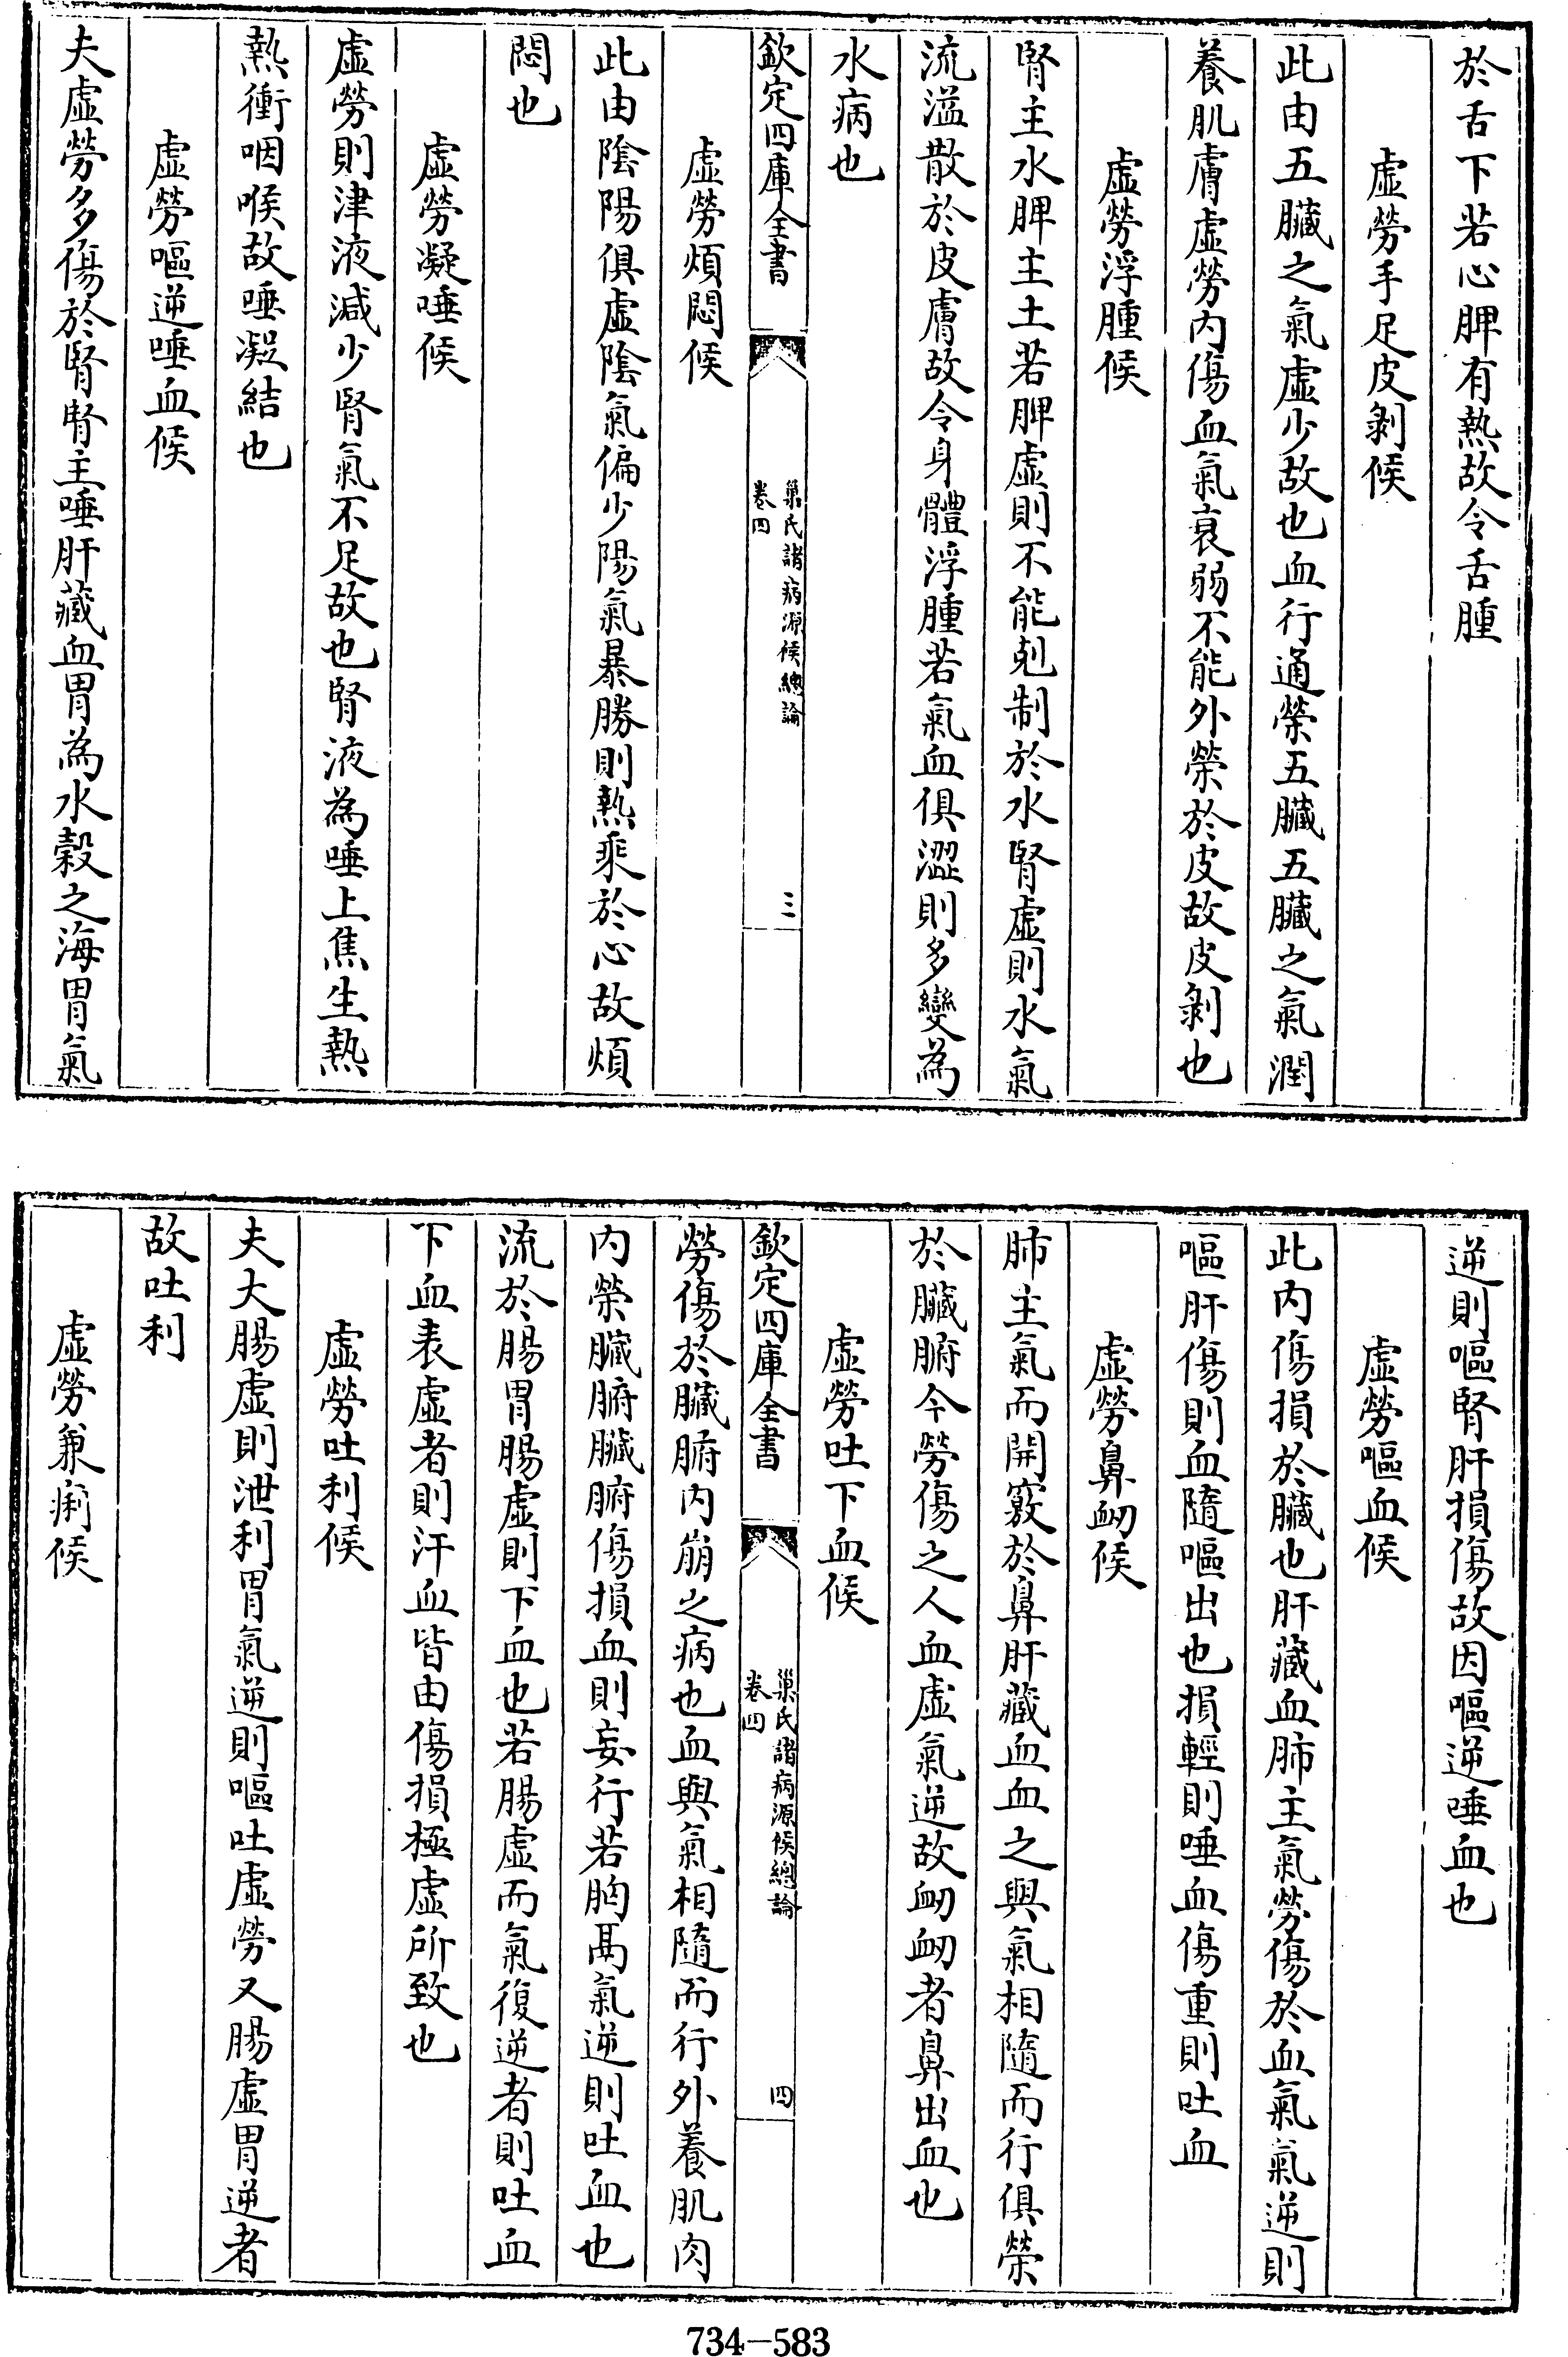 於舌下若心脾有熱故令舌腫
虛勞手足皮剝候
此由五臟之氣虛少故也血行通榮五臟五臟之氣潤
養肌膚虛勞內傷血氣衰弱不能外榮於皮故皮剝也
虛勞浮腫候
腎主水脾主土若脾虛則不能剋制於水腎虛則水氣
流溢散於皮膚故令身體浮腫若氣血俱澀則多變為
水病也
欽定四庫全書
巢氏諸病源候總論
卷四
三
虛勞煩悶候
此由陰陽俱虛陰氣偏少陽氣暴勝則熱乘於心故煩
悶也
虛勞凝唾候
虛勞則津液減少腎氣不足故也腎液為唾上焦生熱
熱衝咽喉故唾凝結也
虛勞嘔逆唾血候
夫虛勞多傷於腎腎主唾肝藏血胃為水穀之海胃氣
逆則嘔腎肝損傷故因嘔逆唾血也
虛勞嘔血候
此內傷損於臟也肝藏血肺主氣勞傷於血氣氣逆則
嘔肝傷則血隨嘔出也損輕則唾血傷重則吐血
虛勞鼻衂候
肺主氣而開竅於鼻肝藏血血之與氣相隨而行俱榮
於臟腑今勞傷之人血虛氣逆故衂衂者鼻出血也
虛勞吐下血候
欽定四庫全書
巢氏諸病源候總論
卷四
四
勞傷於臟腑內崩之病也血與氣相隨而行外養肌肉
內榮臟腑臟腑傷損血則妄行若胸鬲氣逆則吐血也
流於腸胃腸虛則下血也若腸虛而氣復逆者則吐血
下血表虛者則汗血皆由傷損極虛所致也
虛勞吐利候
夫大腸虛則泄利胃氣逆則嘔吐虛勞又腸虛胃逆者
故吐利
虛勞兼痢候
734-583